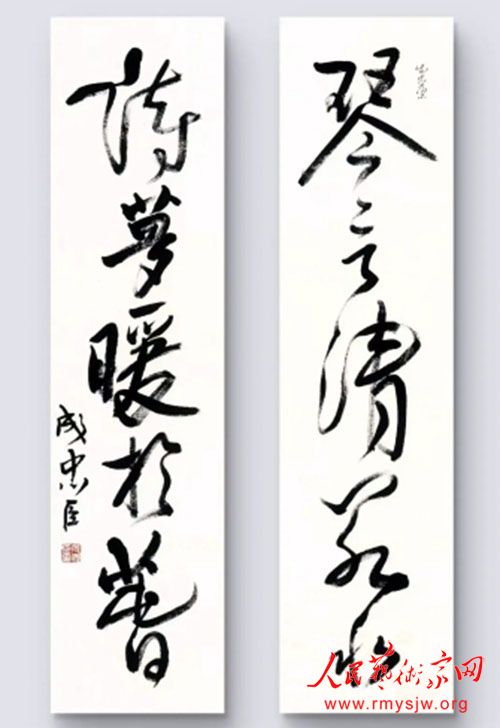 琴言清若水
詩夢暖於春
成忠臣
人民藝術家网
www.rmysjw.org